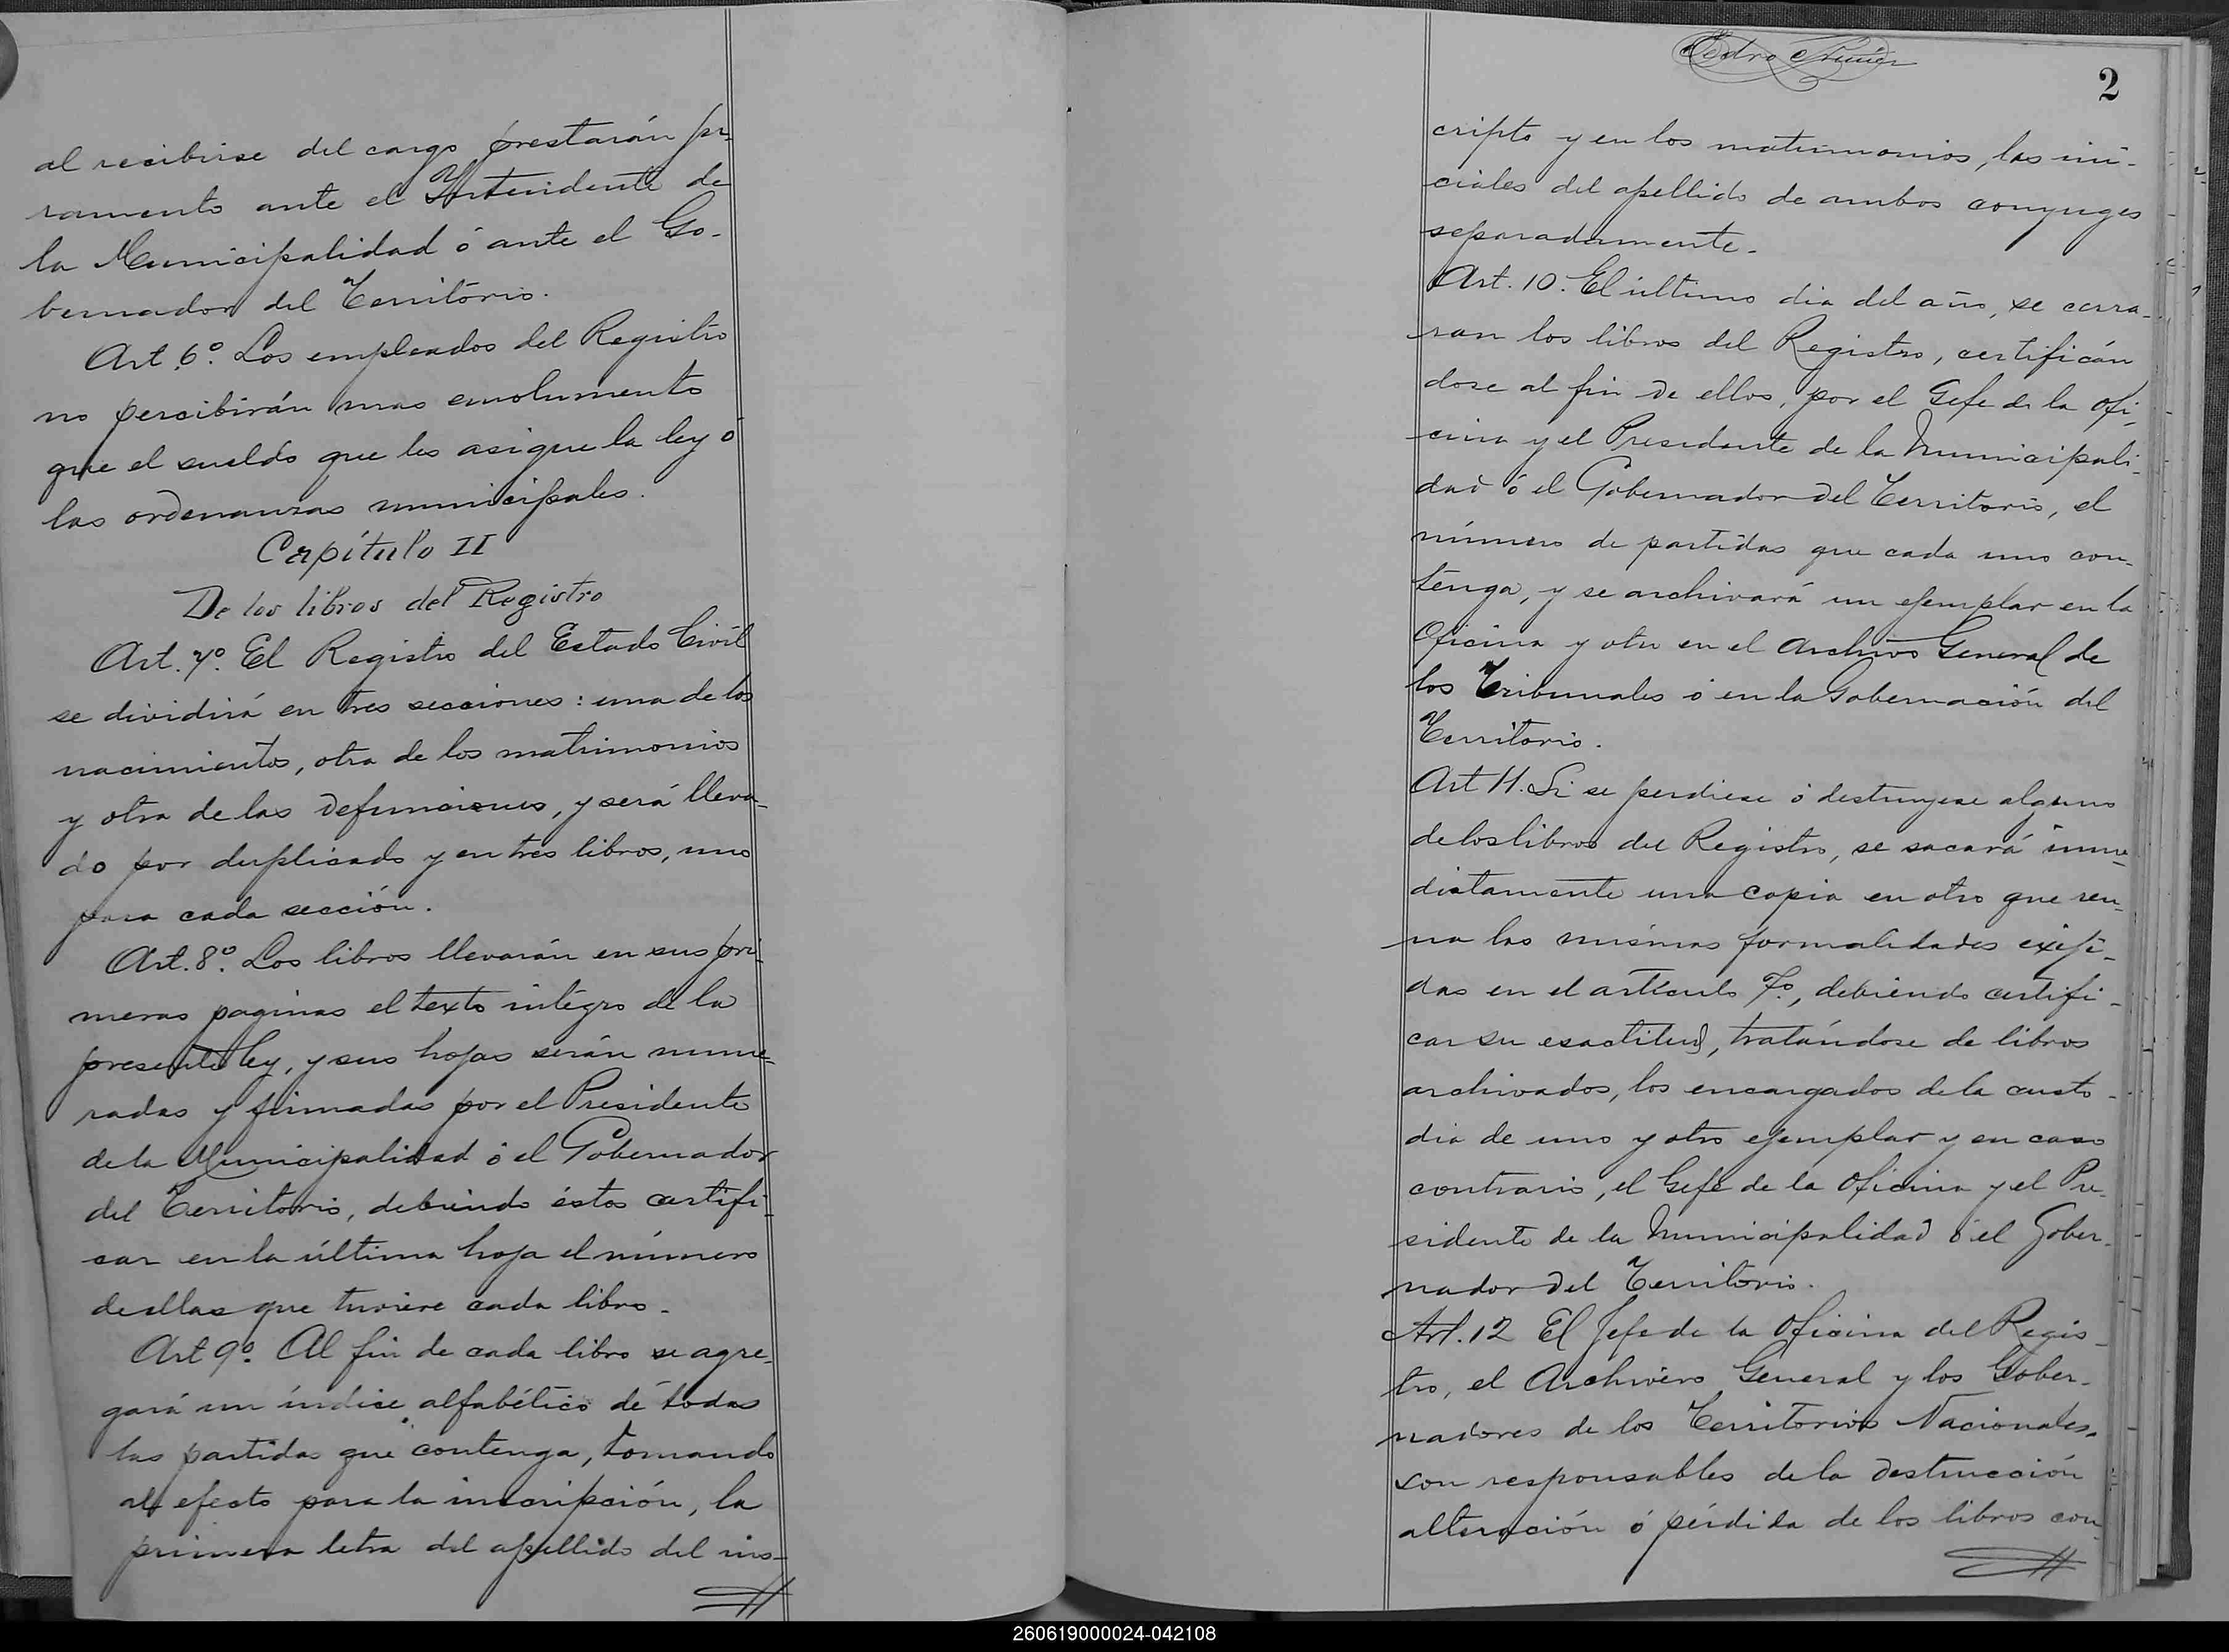 al recibirse del cargo prestarán ju-
ramento ante el Intendente de
la Municipalidad ó ante el Go-
bernador del Territorio.
Art. 6º. Los empleados del Registro
no percibirán mas emolumento
que el sueldo que les asigne la ley ó
las ordenanzas municipales.
Capítulo II
De los libros del Registro
Art. 7º. El Registro del Estado Civil
se dividirá en tres secciones: una de los
nacimientos, otra de los matrimonios
y otra de las defunciones, y será lleva-
do por duplicado y en tres libros, uno
para cada sección.
Art. 8º. Los libros llevarán en sus pri-
meras paginas el texto integro de la
presente ley, y sus hojas serán nume-
radas y firmadas por el Presidente
de la Municipalidad ó el Gobernador
del Territorio, debiendo éstos certifi-
car en la última hoja el número
de ellas que tuviere cada libro.
Art 9º. Al fin de cada libro se agre-
gará un índice alfabético de todas
las partidas que contenga, tomando
al efecto para la inscripción, la
primera letra del apellido del ins-
Pedro
2
cripto y en los matrimonios, las ini-
ciales del apellido de ambos conyuges
separadamente.
Art. 10. El último dia del año, se cerra-
ran los libros del Registro, certificán
dose al fin de ellos, por el Gefe de la Ofi-
cina y el Presidente de la Municipali-
dad ó el Gobernador del Territorio, el
número de partidas que cada uno con-
tenga, y se archivará un ejemplar en la
Oficina y otro en el Archivo General de
los Tribunales ó en la Gobernación del
Territorio.
Art 11. Si se perdiese ó destruyese alguno
de los libros del Registro, se sacará inme-
diatamente una copia en otro que reu-
na las mismas formalidades exiji-
das en el artículo 7º., debiendo certifi-
car su esactitud, tratándose de libros
archivados, los encargados de la custo-
dia de uno y otro ejemplar y en caso
contrario, el Gefe de la Oficina y el Pre-
sidente de la Municipalidad ó el Gober-
nador del Territorio.
Art. 12 El Jefe de la Oficina del Regis-
tro, el Archivero General y los Gober-
nadores de los Territorios Nacionales,
son responsables de la destrucción
alteración ó pérdida de los libros con-
260619000024-042108